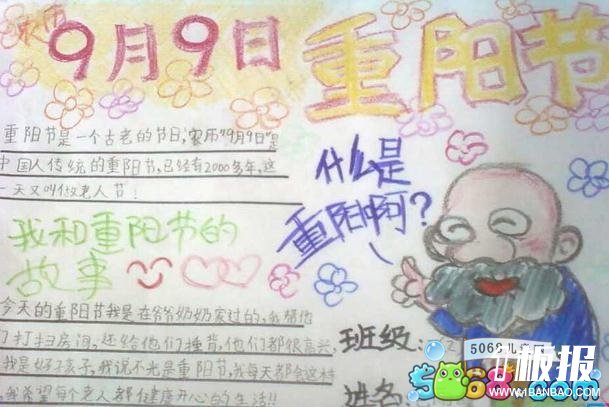 农历
9月9日
重阳节
重阳节是一个古老的节日,农历"9月9日"是
中国人传统的重阳节,已经有2000多年,这
一天又叫做老人节!
什么是
重阳啊?
我和重阳节的
故事
今天的重阳节我是在爷爷奶奶家过的,我帮他
们打扫房间,还给他们捶背,他们都很高兴,
我是好孩子,我说不光是重阳节,我每天都会这样
我希望每个老人都健康开心的生活!!
班级:
姓名:
5068儿童网
5068.com
板报
WWW.1BANBAO.COM